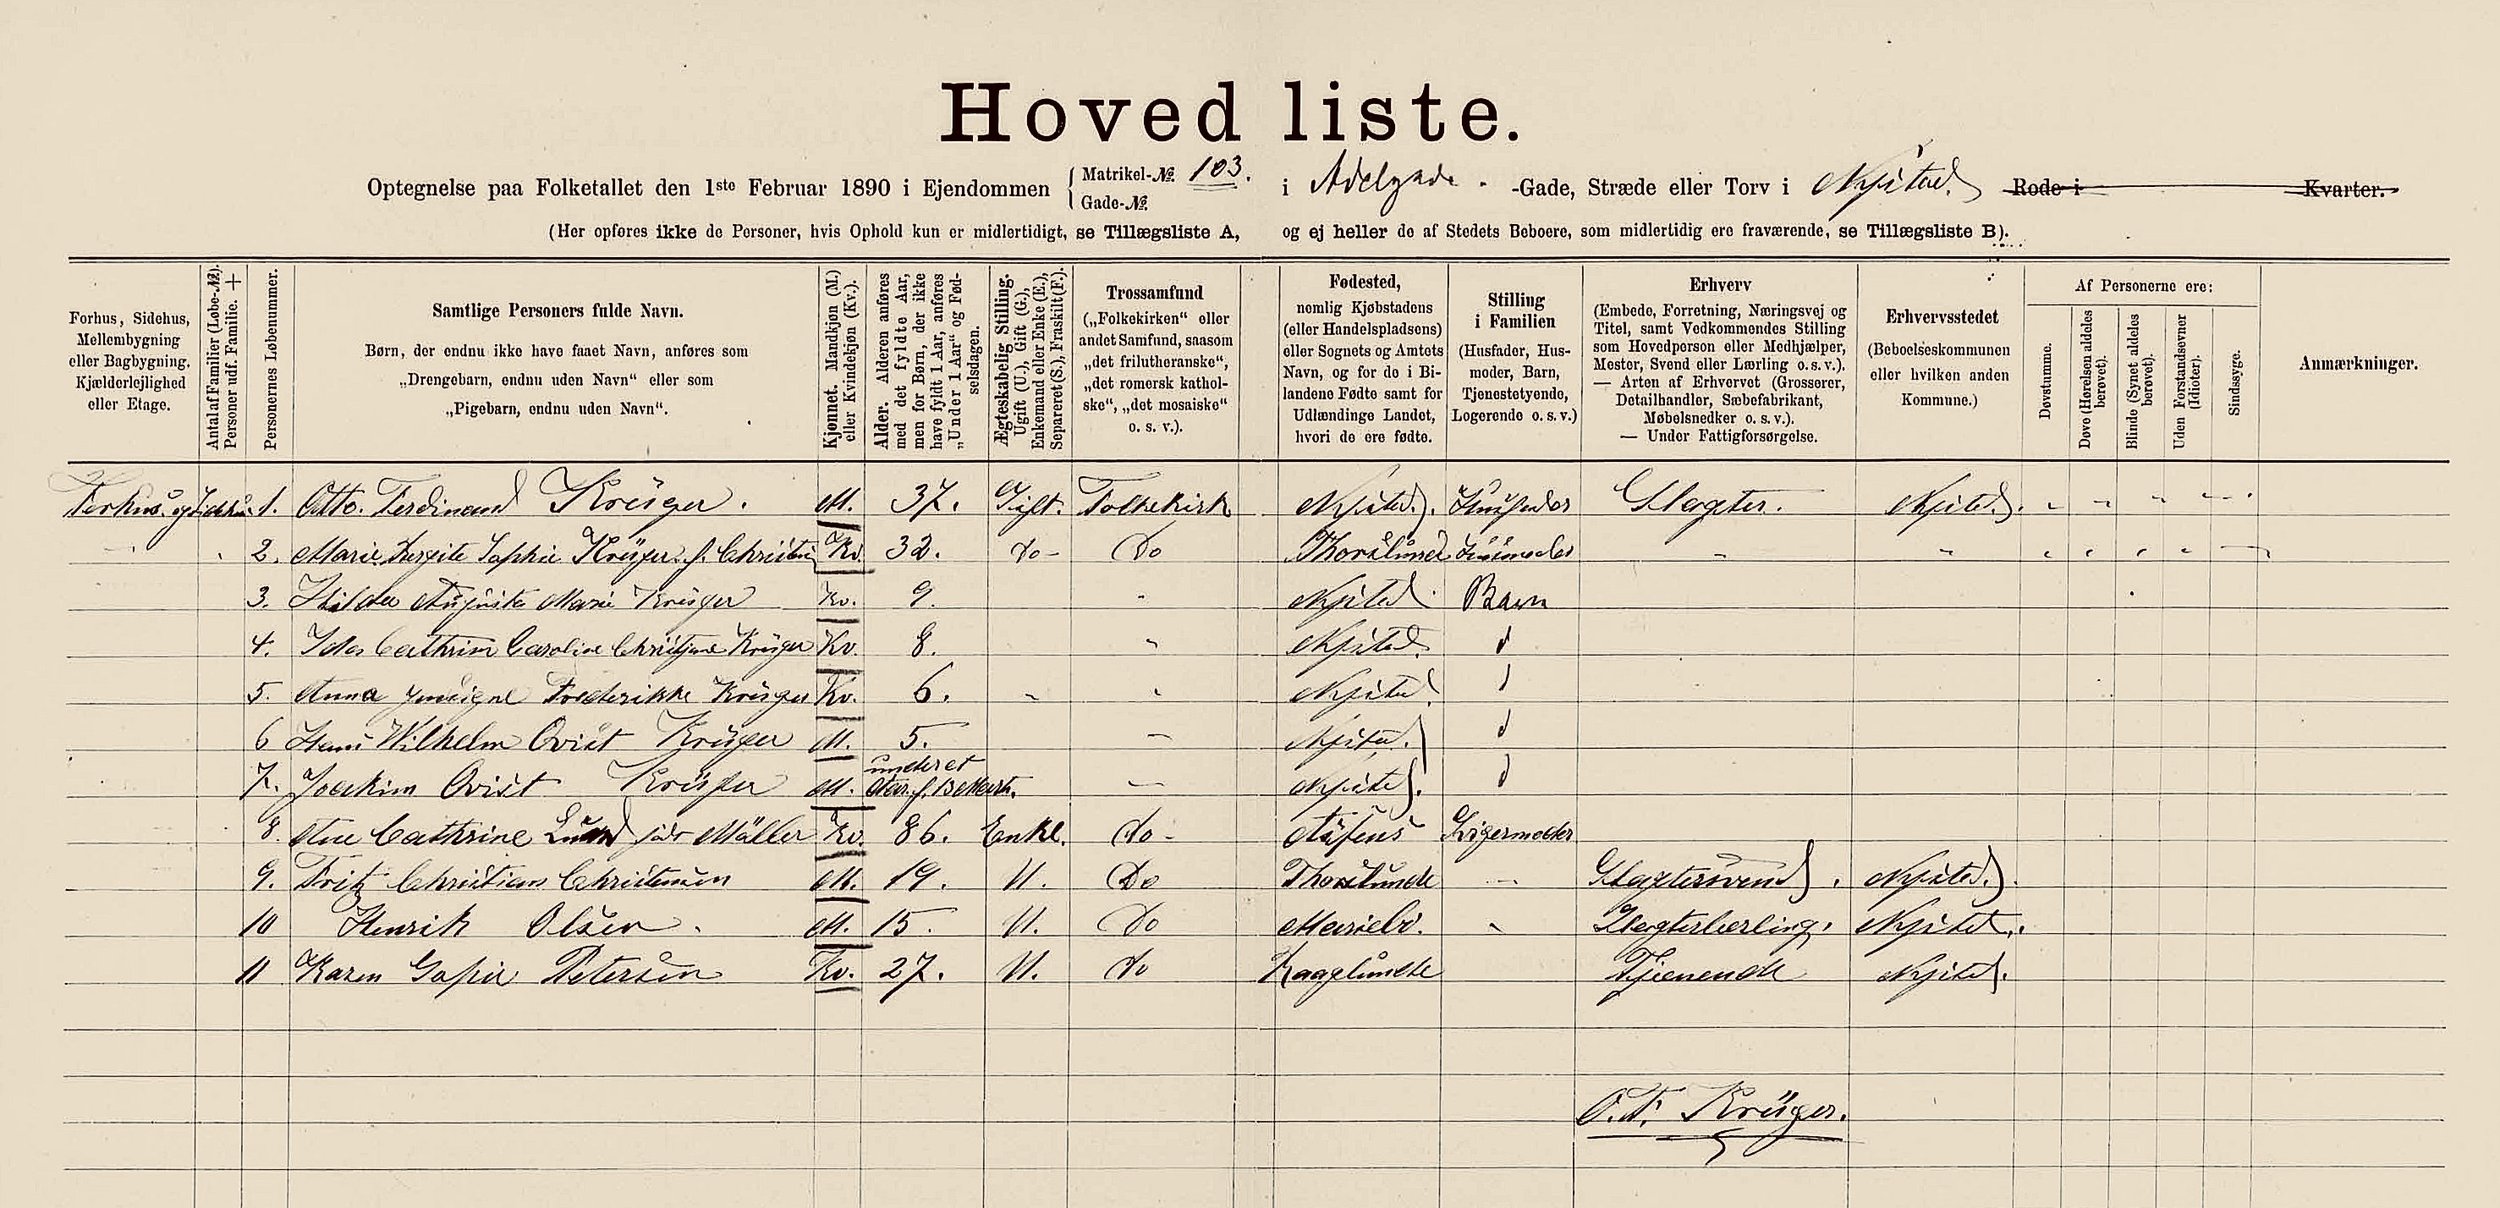 Hovedliste.
Optegnelse paa Folketallet den 1ste Februar 1890 i Ejendommen { Matrikel-№ 103. Gade-№ i Adelgade -Gade, Stræde eller Torv i Nysted. Rode i Kvarter.
(Her opføres ikke de Personer, hvis Ophold kun er midlertidigt, se Tillægsliste A, og ej heller de af Stedets Beboere, som midlertidig ere fraværende, se Tillægsliste B).
Forhus, Sidehus, Mellembygning eller Bagbygning. Kjælderlejlighed eller Etage.
Antal af Familier (Løbe-№). Personer udf. Familie. +
Personernes Løbenummer.
Samtlige Personers fulde Navn.
Børn, der endnu ikke have faaet Navn, anføres som
„Drengebarn, endnu uden Navn“ eller som
„Pigebarn, endnu uden Navn“.
Kjønnet. Mandkjøn (M.) eller Kvindekjøn (Kv.).
Alder. Alderen anføres med det fyldte Aar, men for Børn, der ikke have fyldt 1 Aar, anføres „Under 1 Aar“ og Fødselsdagen.
Ægteskabelig Stilling. Ugift (U.), Gift (G.), Enkemand eller Enke (E.), Separeret (S.), Fraskilt (F.).
Trossamfund
(„Folkekirken“ eller andet Samfund, saasom „det frilutheranske“, „det romersk katholske“, „det mosaiske“ o. s. v.).
Fødested,
nemlig Kjøbstadens (eller Handelspladsens) eller Sognets og Amtets Navn, og for de i Bilandene Fødte samt for Udlændinge Landet, hvori de ere fødte.
Stilling i Familien
(Husfader, Husmoder, Barn, Tjenestetyende, Logerende o. s. v.)
Erhverv
(Embede, Forretning, Næringsvej og Titel, samt Vedkommendes Stilling som Hovedperson eller Medhjælper, Mester, Svend eller Lærling o. s. v.).
— Arten af Erhvervet (Grosserer, Detailhandler, Sæbefabrikant, Møbelsnedker o. s. v.).
— Under Fattigforsørgelse.
Erhvervsstedet
(Beboelseskommunen eller hvilken anden Kommune.)
Af Personerne ere:
Døvstumme.
Døve (Hørelsen aldeles berøvet).
Blinde (Synet aldeles berøvet).
Uden Forstandsevner (Idioter).
Sindssyge.
Anmærkninger.
Forhus og Sidehus 1. Otto Ferdinand Krüger. M. 37. Gift. Folkekirk Nysted. Husfader Slagter. Nysted.
2. Marie Sophie Krüger f. Christen Kv. 32. Do Do Thorslunde Husmoder
3. Hilda Augusta Marie Krüger Kv. 9. Nysted Barn
4. Ida Cathrine Caroline Christjane Krüger Kv. 8. Nysted. d
5. Anna Frederikke Krüger Kv. 6. Nysted d
6 Hans Wilhelm Qvist Krüger M. 5. Nysted. d
7. Joakim Qvist Krüger M. under et Aar. f. 13 Marts. Nysted. d
8. Ane Cathrine Lund født Möller Kv. 86. Enke. do Svigermoder
9. Fritz Christian Christensen M. 19. U. Do Thorslunde Slagtersvend. Nysted.
10 Henrik Olsen. M. 15. U. Do Mariebo. Slagterlærling. Nysted.
11 Karen Sofie Petersen Kv. 27. U. do Kaaglunde Tjenende Nysted.
O. F. Krüger.